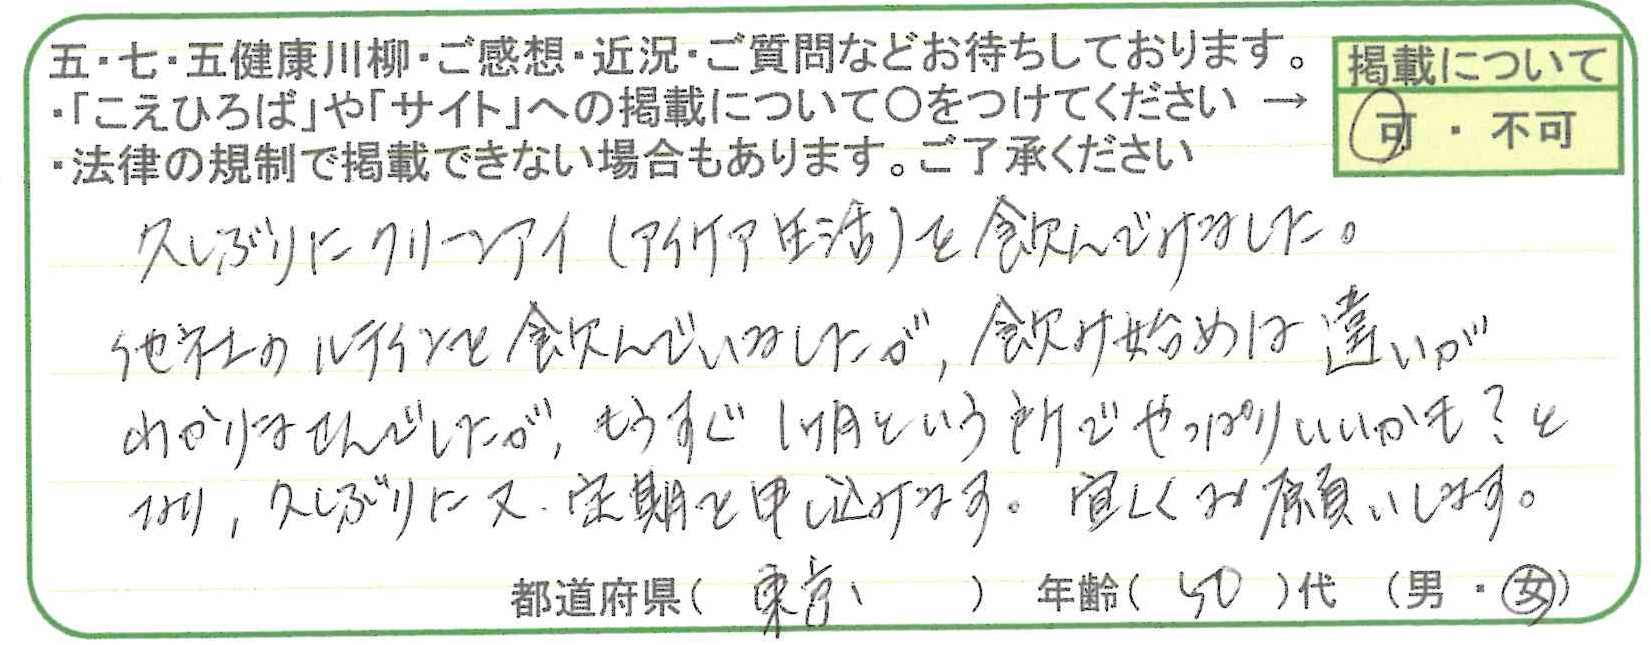 五・七・五健康川柳・ご感想・近況・ご質問などお待ちしております。
・「こえひろば」や「サイト」への掲載について〇をつけてください →
・法律の規制で掲載できない場合もあります。ご了承ください
掲載について
可 ・ 不可
久しぶりにクリーンアイ(アイケア生活)を飲んでみました。
他社のルテインを飲んでいましたが、飲み始めは違いが
わかりませんでしたが、もうすぐ1ヶ月という所でやっぱりいいかも?と
なり、久しぶりに又、定期を申し込みます。宜しくお願いします。
都道府県( 東京 ) 年齢( 50 )代 (男 ・ 女)